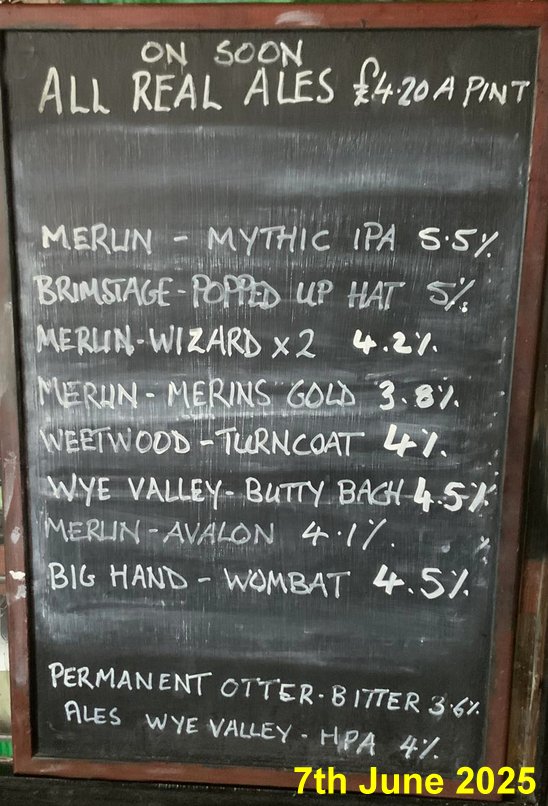 ON SOON
ALL REAL ALES £4.20 A PINT
MERLIN - MYTHIC IPA 5.5%
BRIMSTAGE - POPPED UP HAT 5%
MERLIN - WIZARD X 2 4.2%
MERLIN - MERINS GOLD 3.8%
WEETWOOD - TURNCOAT 4%
WYE VALLEY - BUTTY BACH 4.5%
MERLIN - AVALON 4.1%
BIG HAND - WOMBAT 4.5%
PERMANENT OTTER - BITTER 3.6%
ALES WYE VALLEY - HPA 4%
7th June 2025